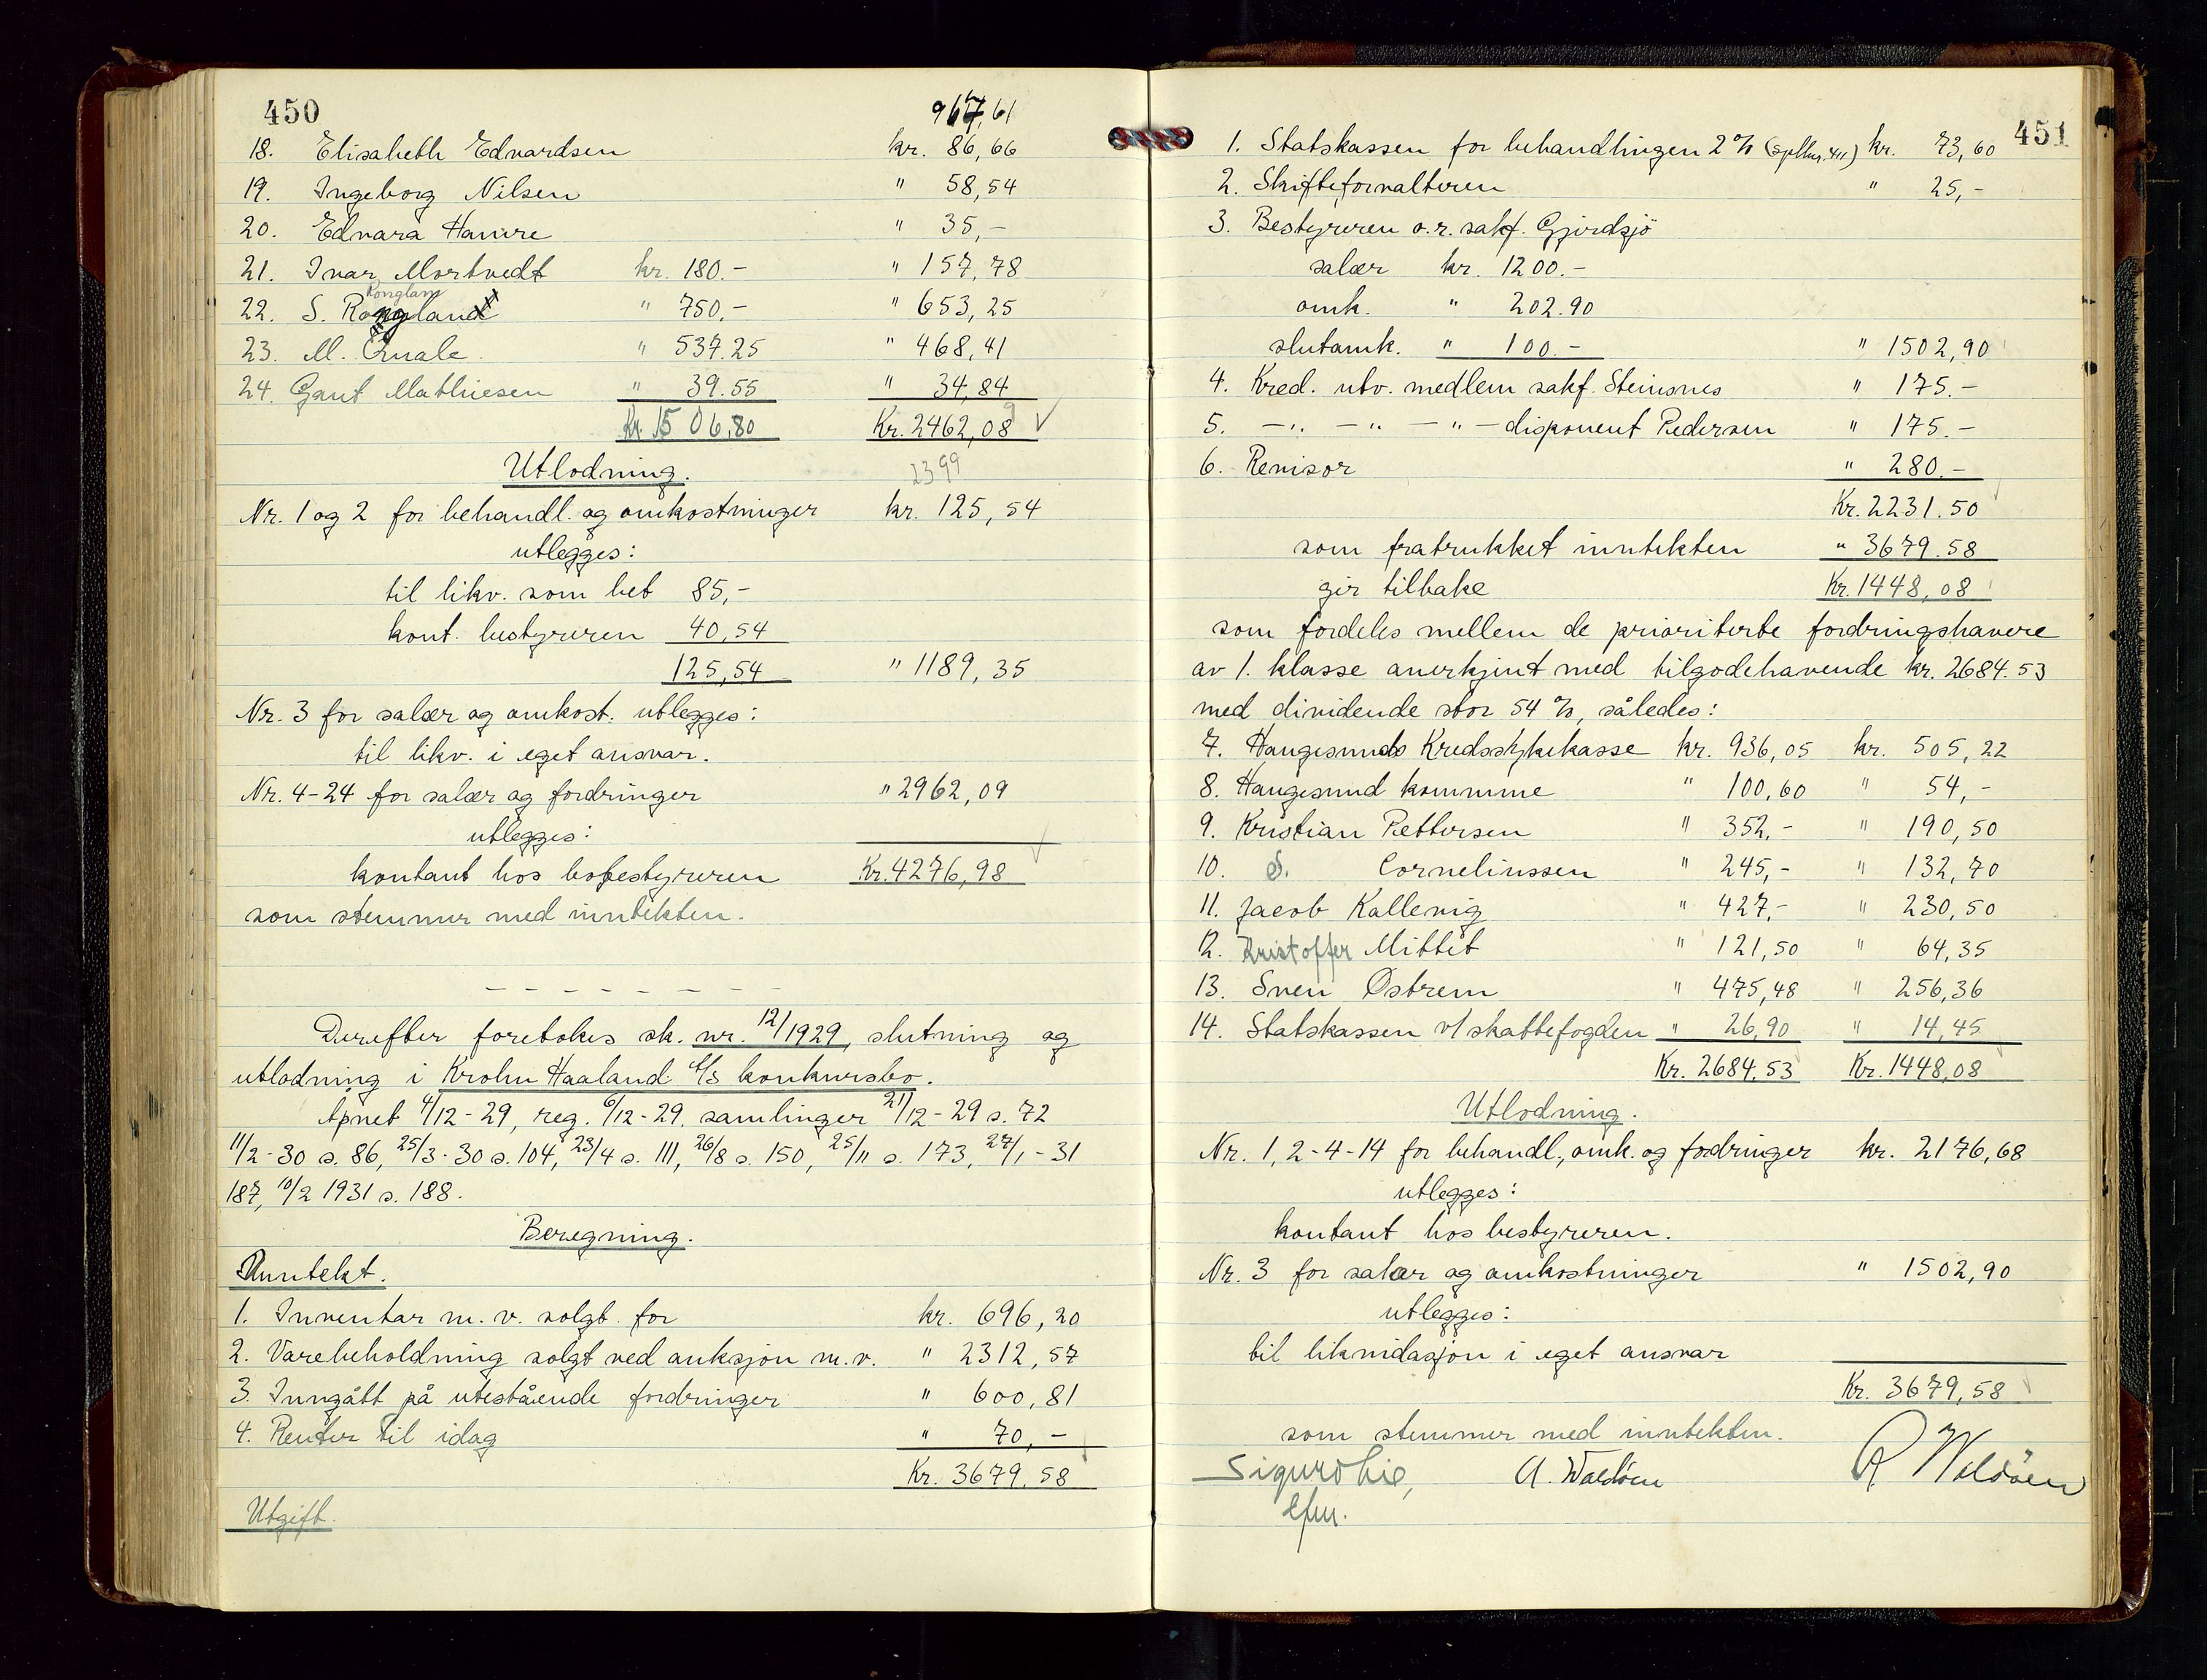 450
967,61
18. Elisabeth Edvardsen kr. 86,66
19. Ingeborg Nilsen " 58,54
20. Edvard Havire " 35,-
21. Ivar Mortvedt kr. 180.- " 157,78
Ronglan
22. S. Rongland " 750,- " 653,25
23. M. Quale " 537.25 " 468,41
24. Gant Mathiesen " 39.55 " 34,84
Kr. 1506,80 Kr. 2462,08
Utlodning. 2399
Nr. 1 og 2 for behandl. og omkostninger kr. 125,54
utlegges:
til likv. som bet 85,-
kont. bestyreren 40,54
125,54 " 1189,35
Nr. 3 for salær og omkost. utlegges:
til likv. i eget ansvar.
Nr. 4-24 for salær og fordringer " 2962,09
utlegges:
kontant hos bobestyreren Kr. 4276,98
som stemmer med inntekten.
- - - - - - - -
Derefter foretokes sk. nr. 12/1929, slutning og
utlodning i Krohn Haaland A/S konkursbo.
Åpnet 4/12-29, reg. 6/12-29, samlinger 21/12-29 s. 72
11/2-30 s. 86, 25/3-30 s. 104, 23/4 s. 111, 26/8 s. 150, 25/11 s. 173, 27/1-31
187, 10/2 1931 s. 188.
Beregning.
Inntekt.
1. Inventar m. v. solgt for kr. 696,20
2. Varebeholdning solgt ved auksjon m.v. " 2312,57
3. Inngått på utestående fordringer " 600,81
4. Renter til idag " 70,-
Kr. 3679,58
Utgift.
451
1. Statskassen for behandlingen 2% kr. 73,60
2. Skifteforvalteren " 25,-
3. Bestyreren o.r. sakf. Gjerdsjö
salær kr. 1200.-
omk. " 202.90
slutomk. " 100.- " 1502,90
4. Kred. utv. medlem sakf. Steinsnes " 175.-
5. -"- -"- -"- disponent Pedersen " 175.-
6. Revisor " 280.-
Kr. 2231.50
som fratrukket inntekten " 3679.58
gir tilbake Kr. 1448,08
som fordeles mellem de prioriterte fordringshavere
av 1. klasse anerkjent med tilgodehavende kr. 2684.53
med dividende stor 54 %, således:
7. Haugesunds Kredssykekasse kr. 936,05 kr. 505,22
8. Haugesund kommune " 100,60 " 54,-
9. Kristian Pettersen " 352,- " 190,50
10. S. Corneliussen " 245,- " 132,70
11. Jacob Kallevig " 427,- " 230,50
12. Kristoffer Mittet " 121,50 " 64,35
13. Sven Østrem " 475,48 " 256,36
14. Statskassen v/ skattefogden " 26,90 " 14,45
Kr. 2684,53 Kr. 1448,08
Utlodning.
Nr. 1, 2-4-14 for behandl., omk. og fordringer kr. 2176,68
utlegges:
kontant hos bestyreren.
Nr. 3 for salær og omkostninger " 1502,90
utlegges:
til likvidasjon i eget ansvar
Kr. 3679,58
som stemmer med inntekten.
Sigurd Lie, A. Waldöen R Waldöen
efm.